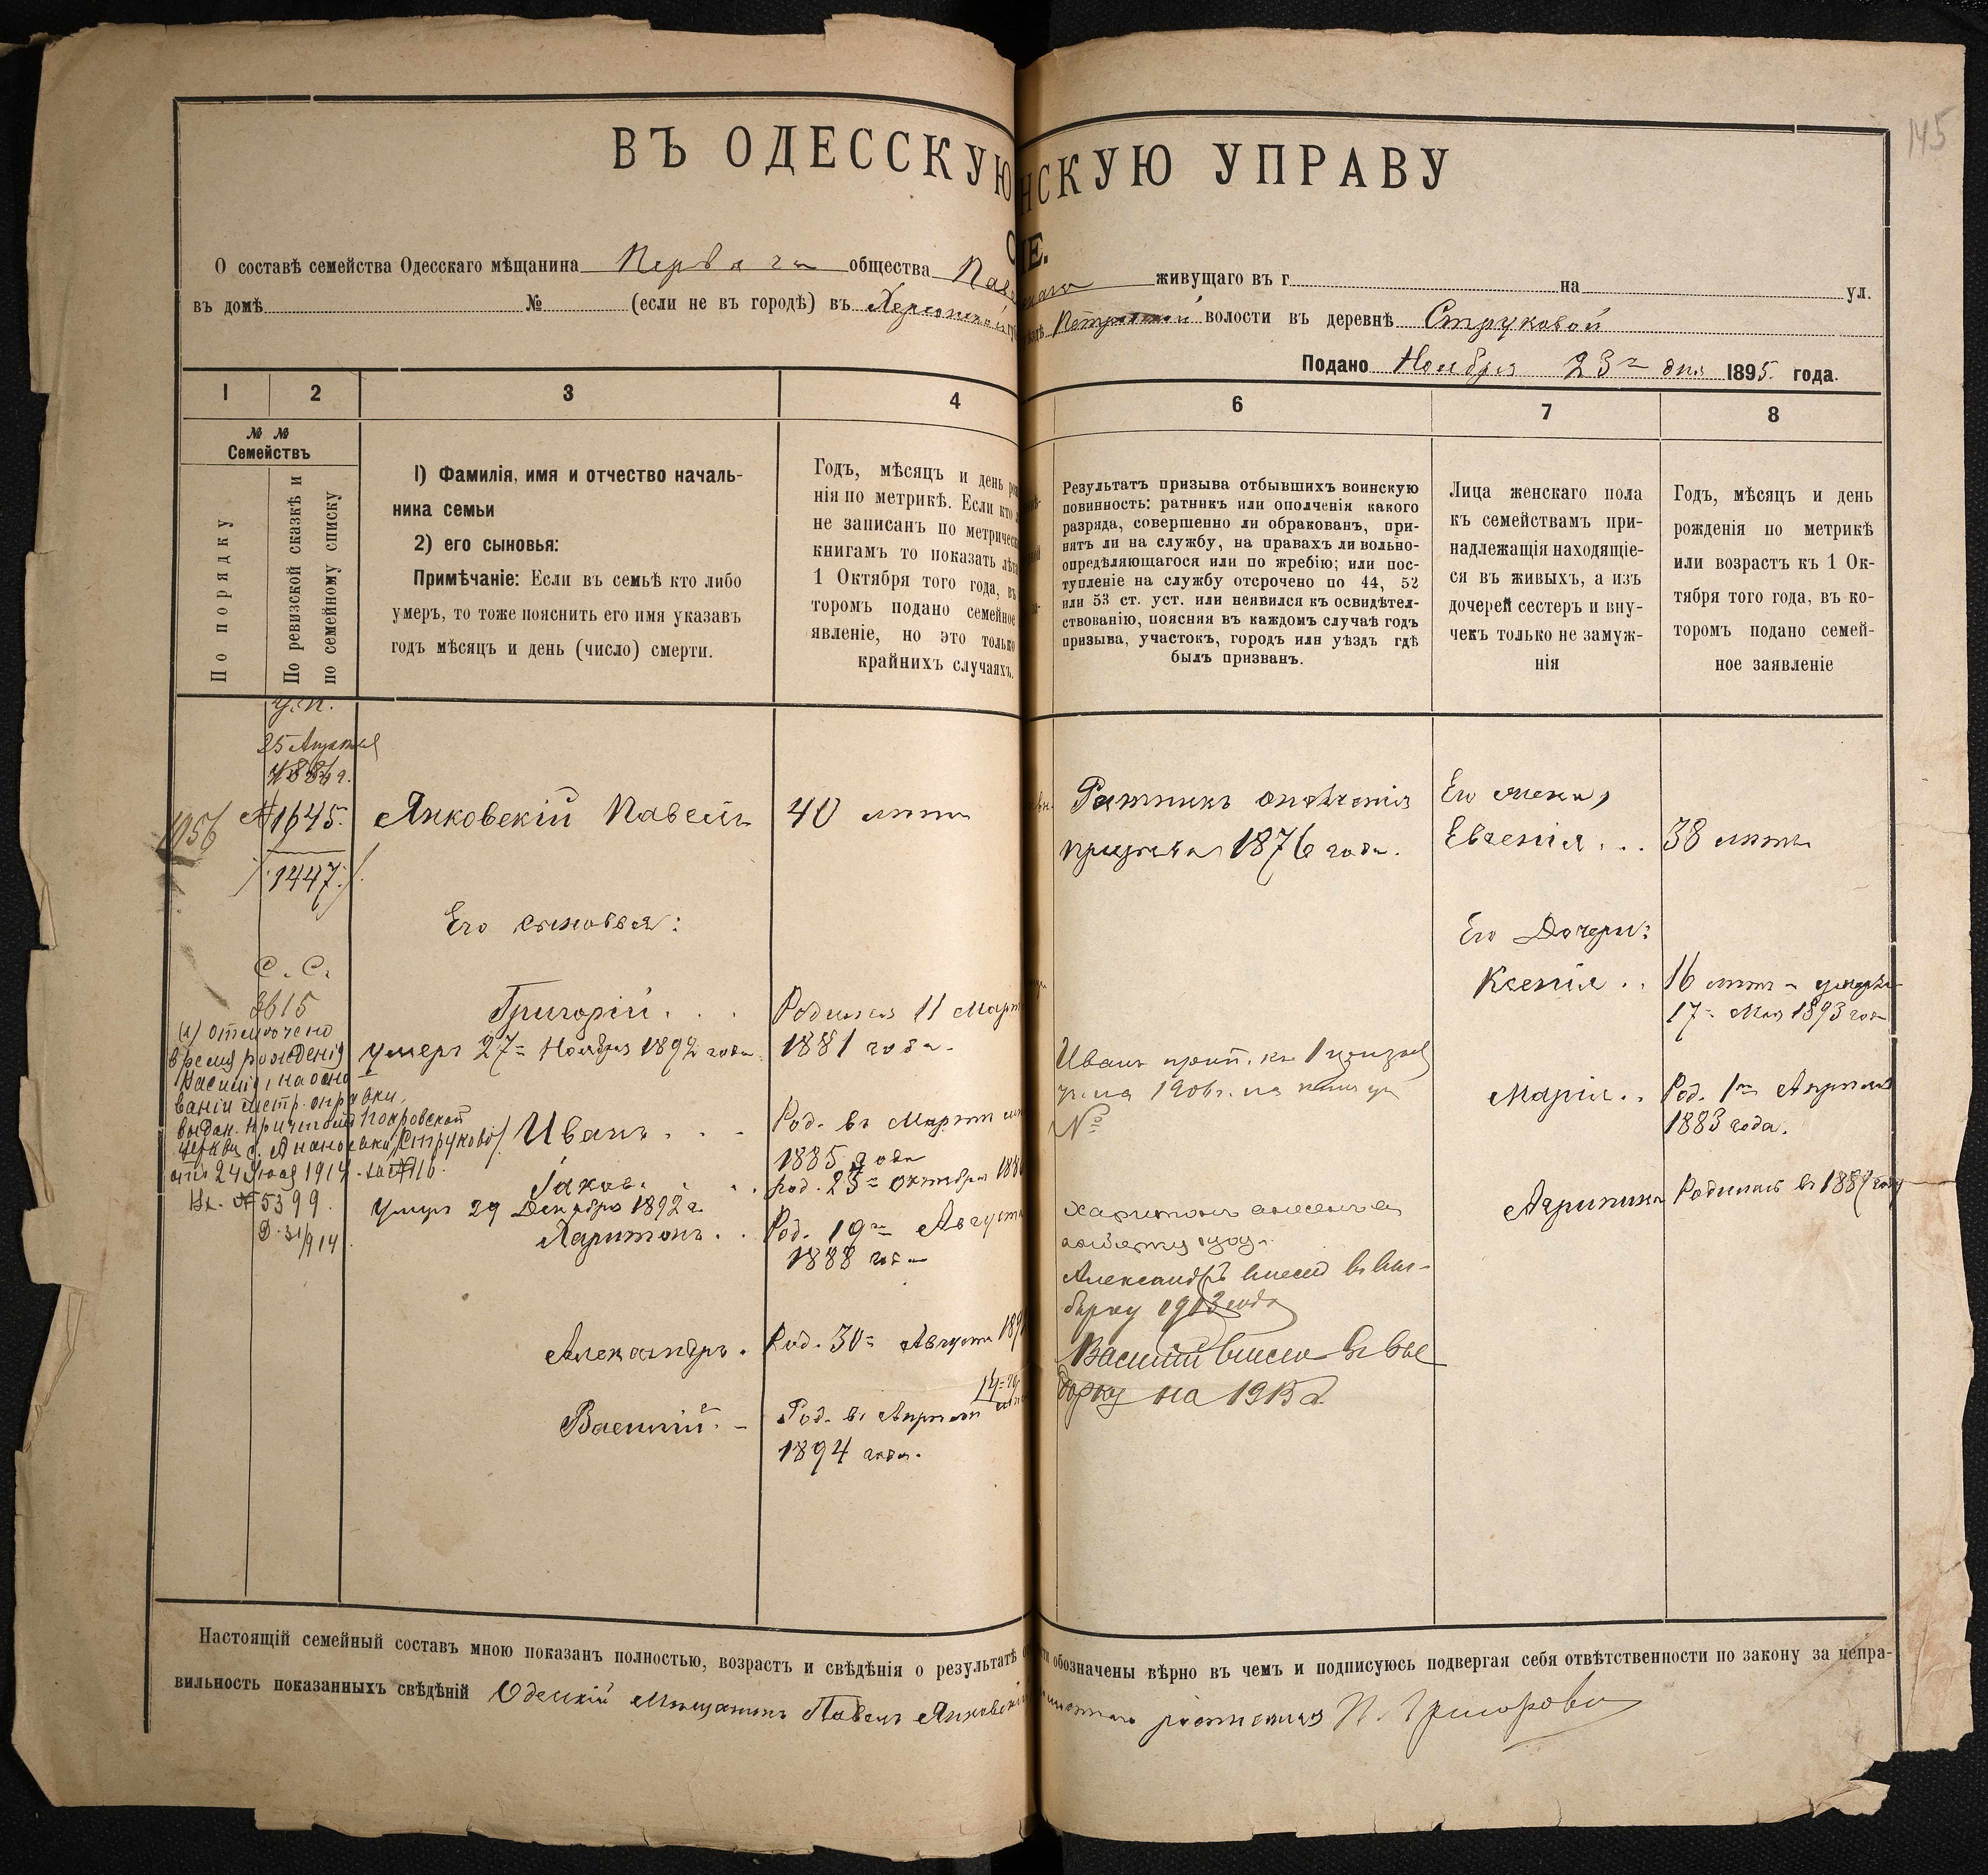 145
ВЪ ОДЕССКУЮ
НСКУЮ УПРАВУ
ІЕ.
О составѣ семейства Одесскаго мѣщанина Перваго общества
живущаго въ г. на ул.
въ домѣ № (если не въ городѣ) въ Херсонской
волости въ деревнѣ Струковой
Подано Ноября 23го дня 1895 года.
1 2 3 4 6 7 8
№ №
Семействъ
По порядку
По ревизской сказкѣ и
по семейному списку
1) Фамилія, имя и отчество началь-
ника семьи
2) его сыновья:
Примѣчаніе: Если въ семьѣ кто либо
умеръ, то тоже пояснить его имя указавъ
годъ мѣсяцъ и день (число) смерти.
Годъ, мѣсяцъ и день
нія по метрикѣ. Если кто
не записанъ по метрическ
книгамъ то показать лѣт
1 Октября того года, въ
торомъ подано семейное
явленіе, но это только
крайнихъ случаяхъ.
Результатъ призыва отбывшихъ воинскую
повинность: ратникъ или ополченія какого
разряда, совершенно ли обракованъ, при-
нятъ ли на службу, на правахъ ли вольно-
опредѣляющагося или по жребію; или пос-
тупленіе на службу отсрочено по 44, 52
или 53 ст. уст. или неявился къ освидѣтел-
ствованію, поясняя въ каждомъ случаѣ годъ
призыва, участокъ, городъ или уѣздъ гдѣ
былъ призванъ.
Лица женскаго пола
къ семействамъ при-
надлежащія находящіе-
ся въ живыхъ, а изъ
дочерей сестеръ и вну-
чекъ только не замуж-
нія
Годъ, мѣсяцъ и день
рожденія по метрикѣ
или возрастъ къ 1 Ок-
тября того года, въ ко-
торомъ подано семей-
ное заявленіе
25 Апреля
1956
№ 1645.
1447
Янковскій Павелъ
40 лѣтъ
Ратникъ ополченія
призыва 1876 года.
Его жена,
Евгенія...
38 лѣтъ
Его сыновья:
Его Дочери:
С. С.
3615
(1) отмѣчено
время рожденія
Василія на осно-
ваніи метр. справки,
выдан. причтомъ Покровской
церкви с. Ананьевки (Струково)
отъ 24 Іюля 1914 за № 116.
Вх. № 5399.
Д. 31/914
Григорій...
умеръ 27го Ноября 1892 года.
Родился 11 Март
1881 года.
Иванъ...
Род. въ Мартѣ
1885 года
Іаковъ.
род. 23го Октября 188
умеръ 29 Декабря 1892 г.
Харитонъ..
Род. 19го Августа
1888 года
Александръ.
Род. 30го Августа 189
Василій. -
Род. въ Апрѣлѣ
1894 года.
Иванъ прип. къ 1 призыв
уч. на 1906 г.
№
Харитонъ
Александръ внесенъ въ вы-
борку 1913 года
Василій внесенъ въ вы
борку на 1915 г.
Ксенія..
16 лѣтъ умерла
17го Мая 1893 года
Марія..
Род. 1го Апрѣля
1883 года.
Агрипина
Родилась въ 1887 году
Настоящій семейный составъ мною показанъ полностью, возрастъ и свѣдѣнія о результатѣ
обозначены вѣрно въ чемъ и подписуюсь подвергая себя отвѣтственности по закону за непра-
вильность показанныхъ свѣдѣній Одесскій Мѣщанинъ Павелъ Янковскій
росписался П. Григорови